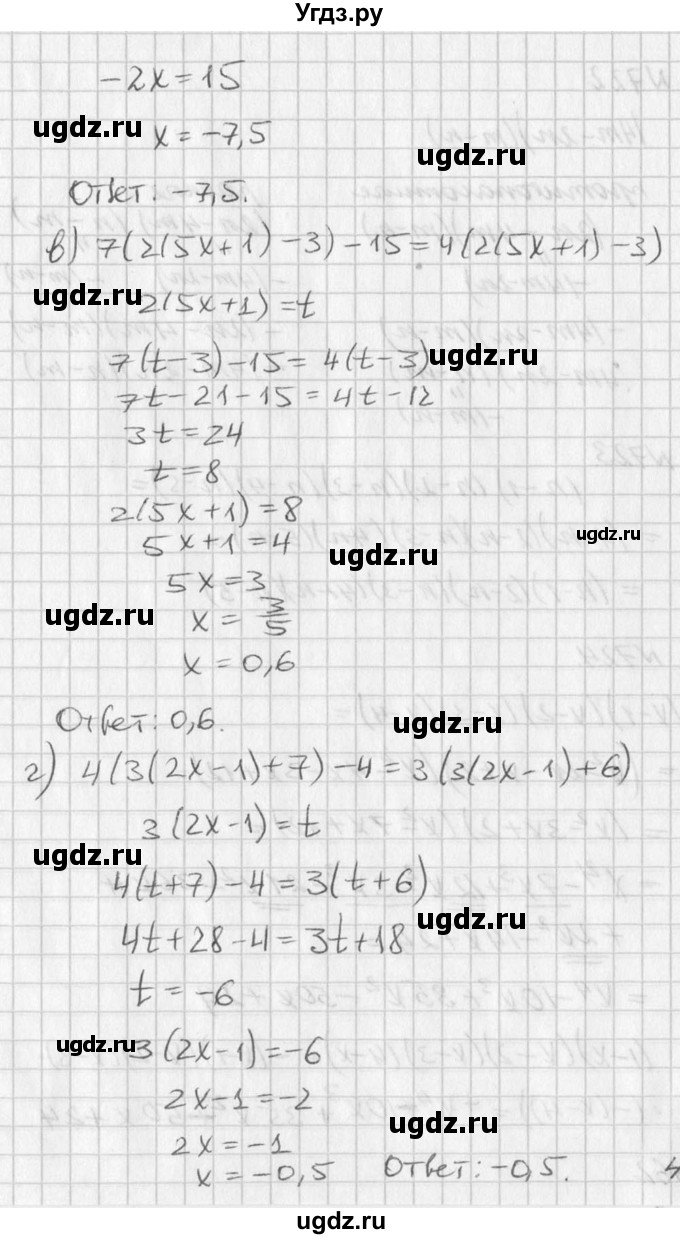 Угдз.ру
-2x = 15
ugdz.ru x = -7,5
ugdz.ru
Ответ: -7,5.
в) 7(2(5x+1)-3)-15=4(2(5x+1)-3)
ugdz.ru 2(5x+1)=t
7(t-3)-15= 4(t-3) ugdz.ru
7t-21-15=4t-12
3t=24
t=8
2(5x+1)=8
5x+1=4
ugdz.ru
ugdz.ru
5x=3
ugdz.ru x = 3/5
x = 0,6
Ответ: 0,6.
ugdz.ru
г) 4(3(2x-1)+7)-4=3(3(2x-1)+6)
3(2x-1)=t
ugdz.ru
4(t+7)-4=3(t+6)
ugdz.ru
4t+28-4=3t+18
t = -6
ugdz.ru 3(2x-1)=-6
2x-1=-2
ugdz.ru
2x=-1
x=-0,5 Ответ: -0,5.
ugdz.ru